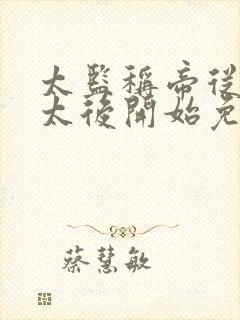 太監稱帝從
太後開始免
蔡慧敏